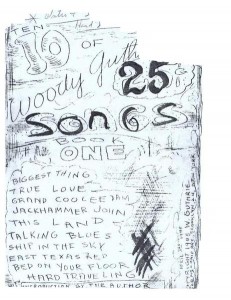 TEN
10 OF
Woody Guth
25¢
SONGS
BOOK
ONE
BIGGEST THING
TRUE LOVE
GRAND COOLEE DAM
JACKHAMMER JOHN
THIS LAND
TALKING BLUES
SHIP IN THE SKY
EAST TEXAS RED
BED ON YOUR FLOOR
HARD TRAVELING
INTRODUCTION BY THE AUTHOR